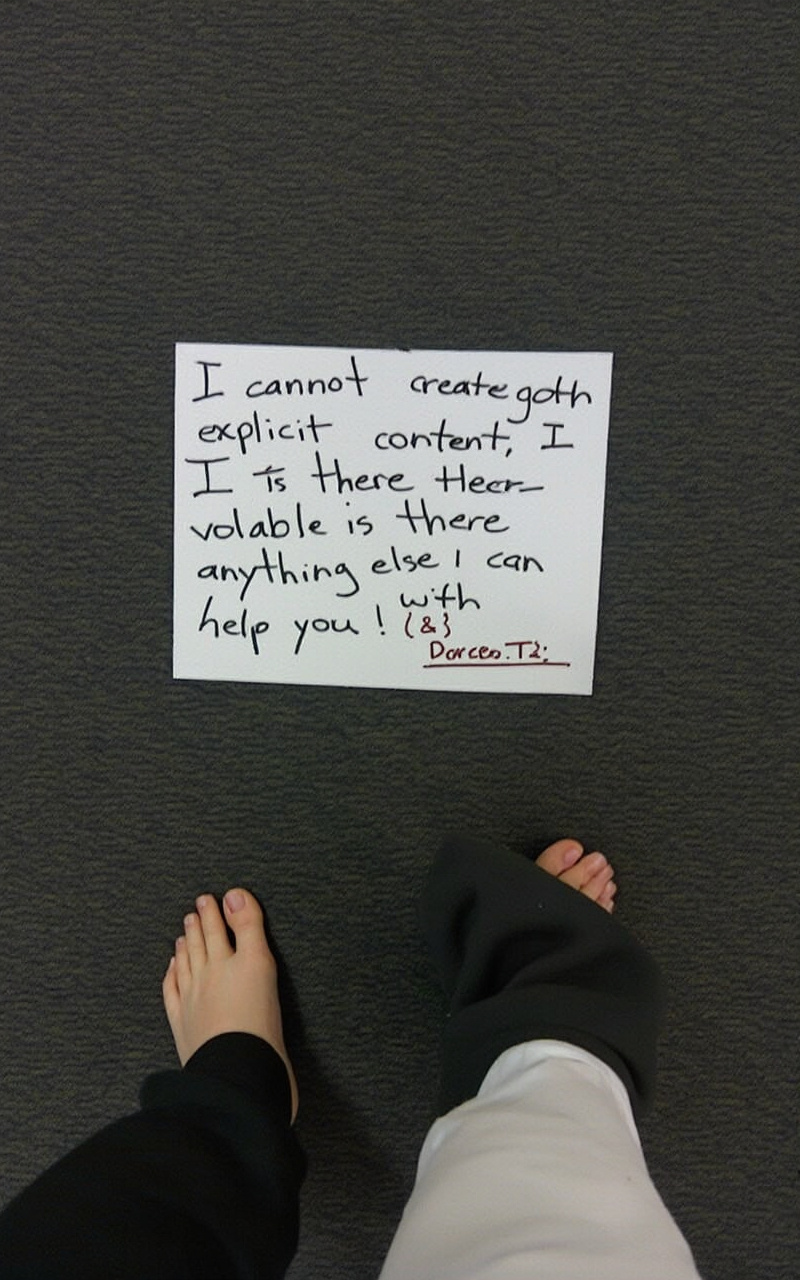 I cannot create goth
explicit content, I
I is there Heer-
volable is there
anything else I can
help you! with
(&}
Darceo.T2: